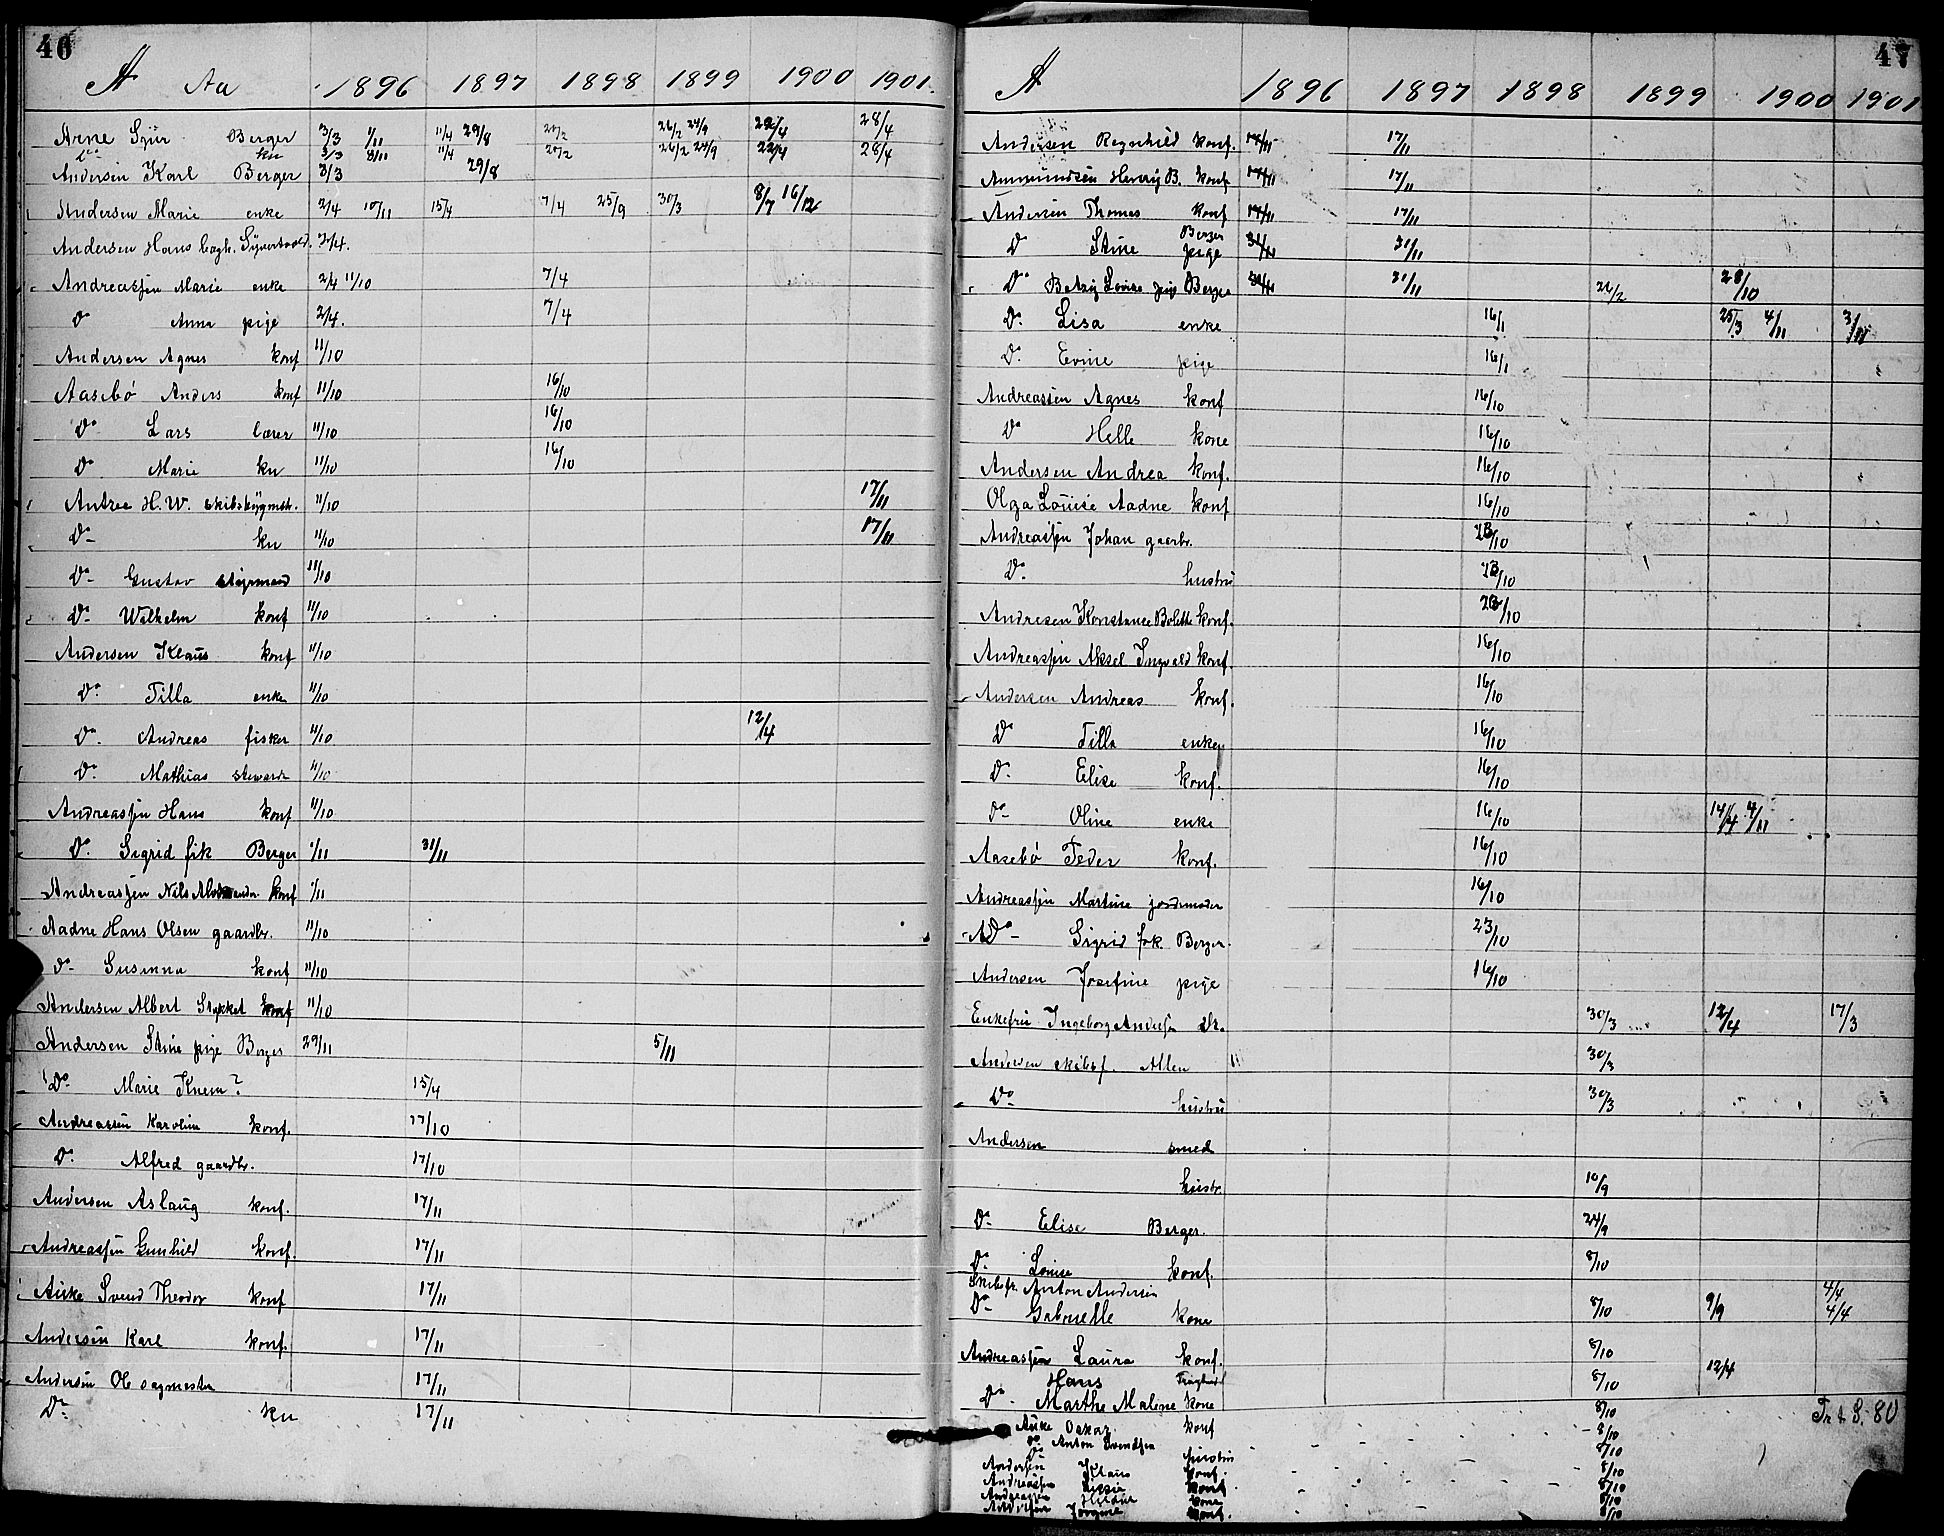 46
A Aa 1896 1897 1898 1899 1900 1901.
Arne Sjur Berger 3/3 1/11 11/4 29/8 20/2 26/2 24/9 22/4 28/4
kn 3/3 8/11 11/4 20/2 26/2 24/9 22/4 28/4
Andersen Karl Berger 3/3 29/8
Andersen Marie enke 2/4 10/11 15/4 7/4 25/9 30/3 8/7 16/12
Andersen Hans 2/4.
Andreassen Marie enke 2/4 11/10 7/4
Do Anna pige 2/4. 7/4
Andersen Agnes konf 11/10
Aasebö Anders konf 11/10 16/10
Do Lars lærer 11/10 16/10
Do Marie kn 11/10 16/10
Antree H. W. 11/10 17/11
Do kn 11/10 17/11
Do Gustav styrmand 11/10
Do Wilhelm konf 11/10
Andersen Klaus konf 11/10
Do Tilla enke 11/10
Do Andreas fisker 11/10 12/4
Do Mathias steward 11/10
Andreassen Hans konf 11/10
Do Sigrid frk Berger 1/11 31/11
Andreassen Nils konf 1/11
Aadne Hans Olsen gaardbr. 11/10
Do Susanna konf 11/10
Andersen Albert Stokket konf 11/10
Andersen Stine pige Berger 29/11 5/11
Do Marie Knem? 15/4
Andreassen Karoline konf. 17/10
Do Alfred gaardbr. 17/10
Andersen Aslaug konf. 17/11
Andreassen Gunhild konf. 17/11
Auke Svend Theodor konf 17/11
Andersen Karl konf. 17/11
Andersen Ole sagmester 17/11
Do kn 17/11
47
A 1896 1897 1898 1899 1900 1901
Andersen Ragnhild konf. 17/11
Ammundsen Henry B. konf 17/11
Andersen Thomas konf 17/11
Do Stine Berger pige 31/11
Do Betzy Lovise pige Berger 31/11 26/2 28/10
Do Lisa enke 16/1 25/3 4/11 3/11
Do Evine pige 16/1
Andreassen Agnes konf 16/10
Do Helle kone 16/10
Andersen Andrea konf. 16/10
Olga Louise Aadne konf 16/10
Andreassen Johan gaardbr. 23/10
Do hustru 23/10
Andresen Konstance Bolette konf. 23/10
Andreassen Aksel Ingvald konf. 16/10
Andersen Andreas konf. 16/10
Do Tilla enke 16/10
Do Elise konf. 16/10
Do Oline enke 16/10 14/4 4/11
Aasebö Peder konf. 16/10
Andreassen Martine jordmoder 16/10
Do Sigrid frk. Berger. 23/10
Andersen Josefine pige 16/10
Enkefru Ingeborg Andersen 30/3 12/4 17/3
Andersen skibsf. Allen 30/3
Do hustru 30/3
Andersen smed
hustr. 10/9
Do Elise Berger. 24/9
Do Louise konf. 8/10
Skibsfr. Anton Andersen 4/4
Do Gabrielle kone 8/10 9/9 4/4
Andreassen Laura konf. 8/10
Hans 8/10 12/4
Do Marthe Malene kone 8/10 Tr & S. 80
Auke Oskar konf 8/10
Do Anton Svendsen 8/10
Do hustru
Andersen Klaus konf. 8/10
Andreassen konf 8/10
Andreassen kone 8/10
Andersen Jorgine konf. 8/10